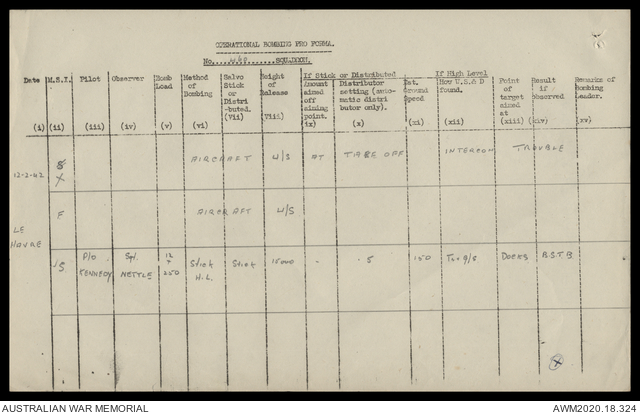 OPERATIONAL BOMBING PRO FORMA.
No. 460 SQUADRON.
Date (i)
M.S.I. (ii)
Pilot (iii)
Observer (iv)
Bomb Load (v)
Method of Bombing (vi)
Salvo Stick or Distri-buted. (Vii)
Height of Release (Viii)
If Stick or Distributed
Amount aimed off aiming point. ix)
Distributor setting (auto-matic distri butor only). (x)
Est. Ground Speed (xi)
If High Level
How U.S.& D found. (xii)
Point of target aimed at (xiii)
Result if observed (xiv)
Remarks of Bombing Leader. (xv)
X AIRCRAFT U/S AT TAKE OFF INTERCOM TROUBLE
F AIRCRAFT U/S
LE HAVRE
S P/O KENNEDY Sgt. NETTLE 12 x 250 Stick H.L. Stick 15000 - 5 150 Docks B.S.T.B
X
AUSTRALIAN WAR MEMORIAL
AWM2020.18.324